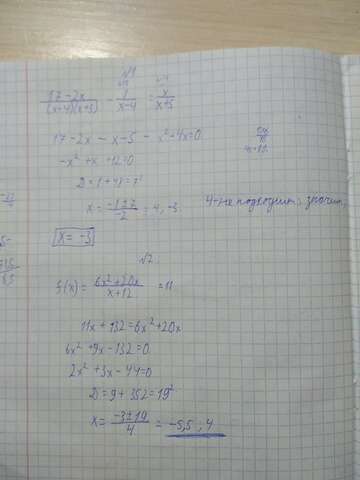 √1
x+5 x-4
17-2x/(x-4)(x+5) - 1/x-4 = x/x+5
17-2x-x-5-x²+4x=0
-x²+x+12=0
D=1+48=7²
x=-1±7/-2=4,-3. 4-не подходит, значит
x=-3
√2.
f(x)=6x²+20x/x+12=11
11x+132=6x²+20x
6x²+9x-132=0
2x²+3x-44=0
D=9+352=19²
x=-3±19/4=-5,5;4